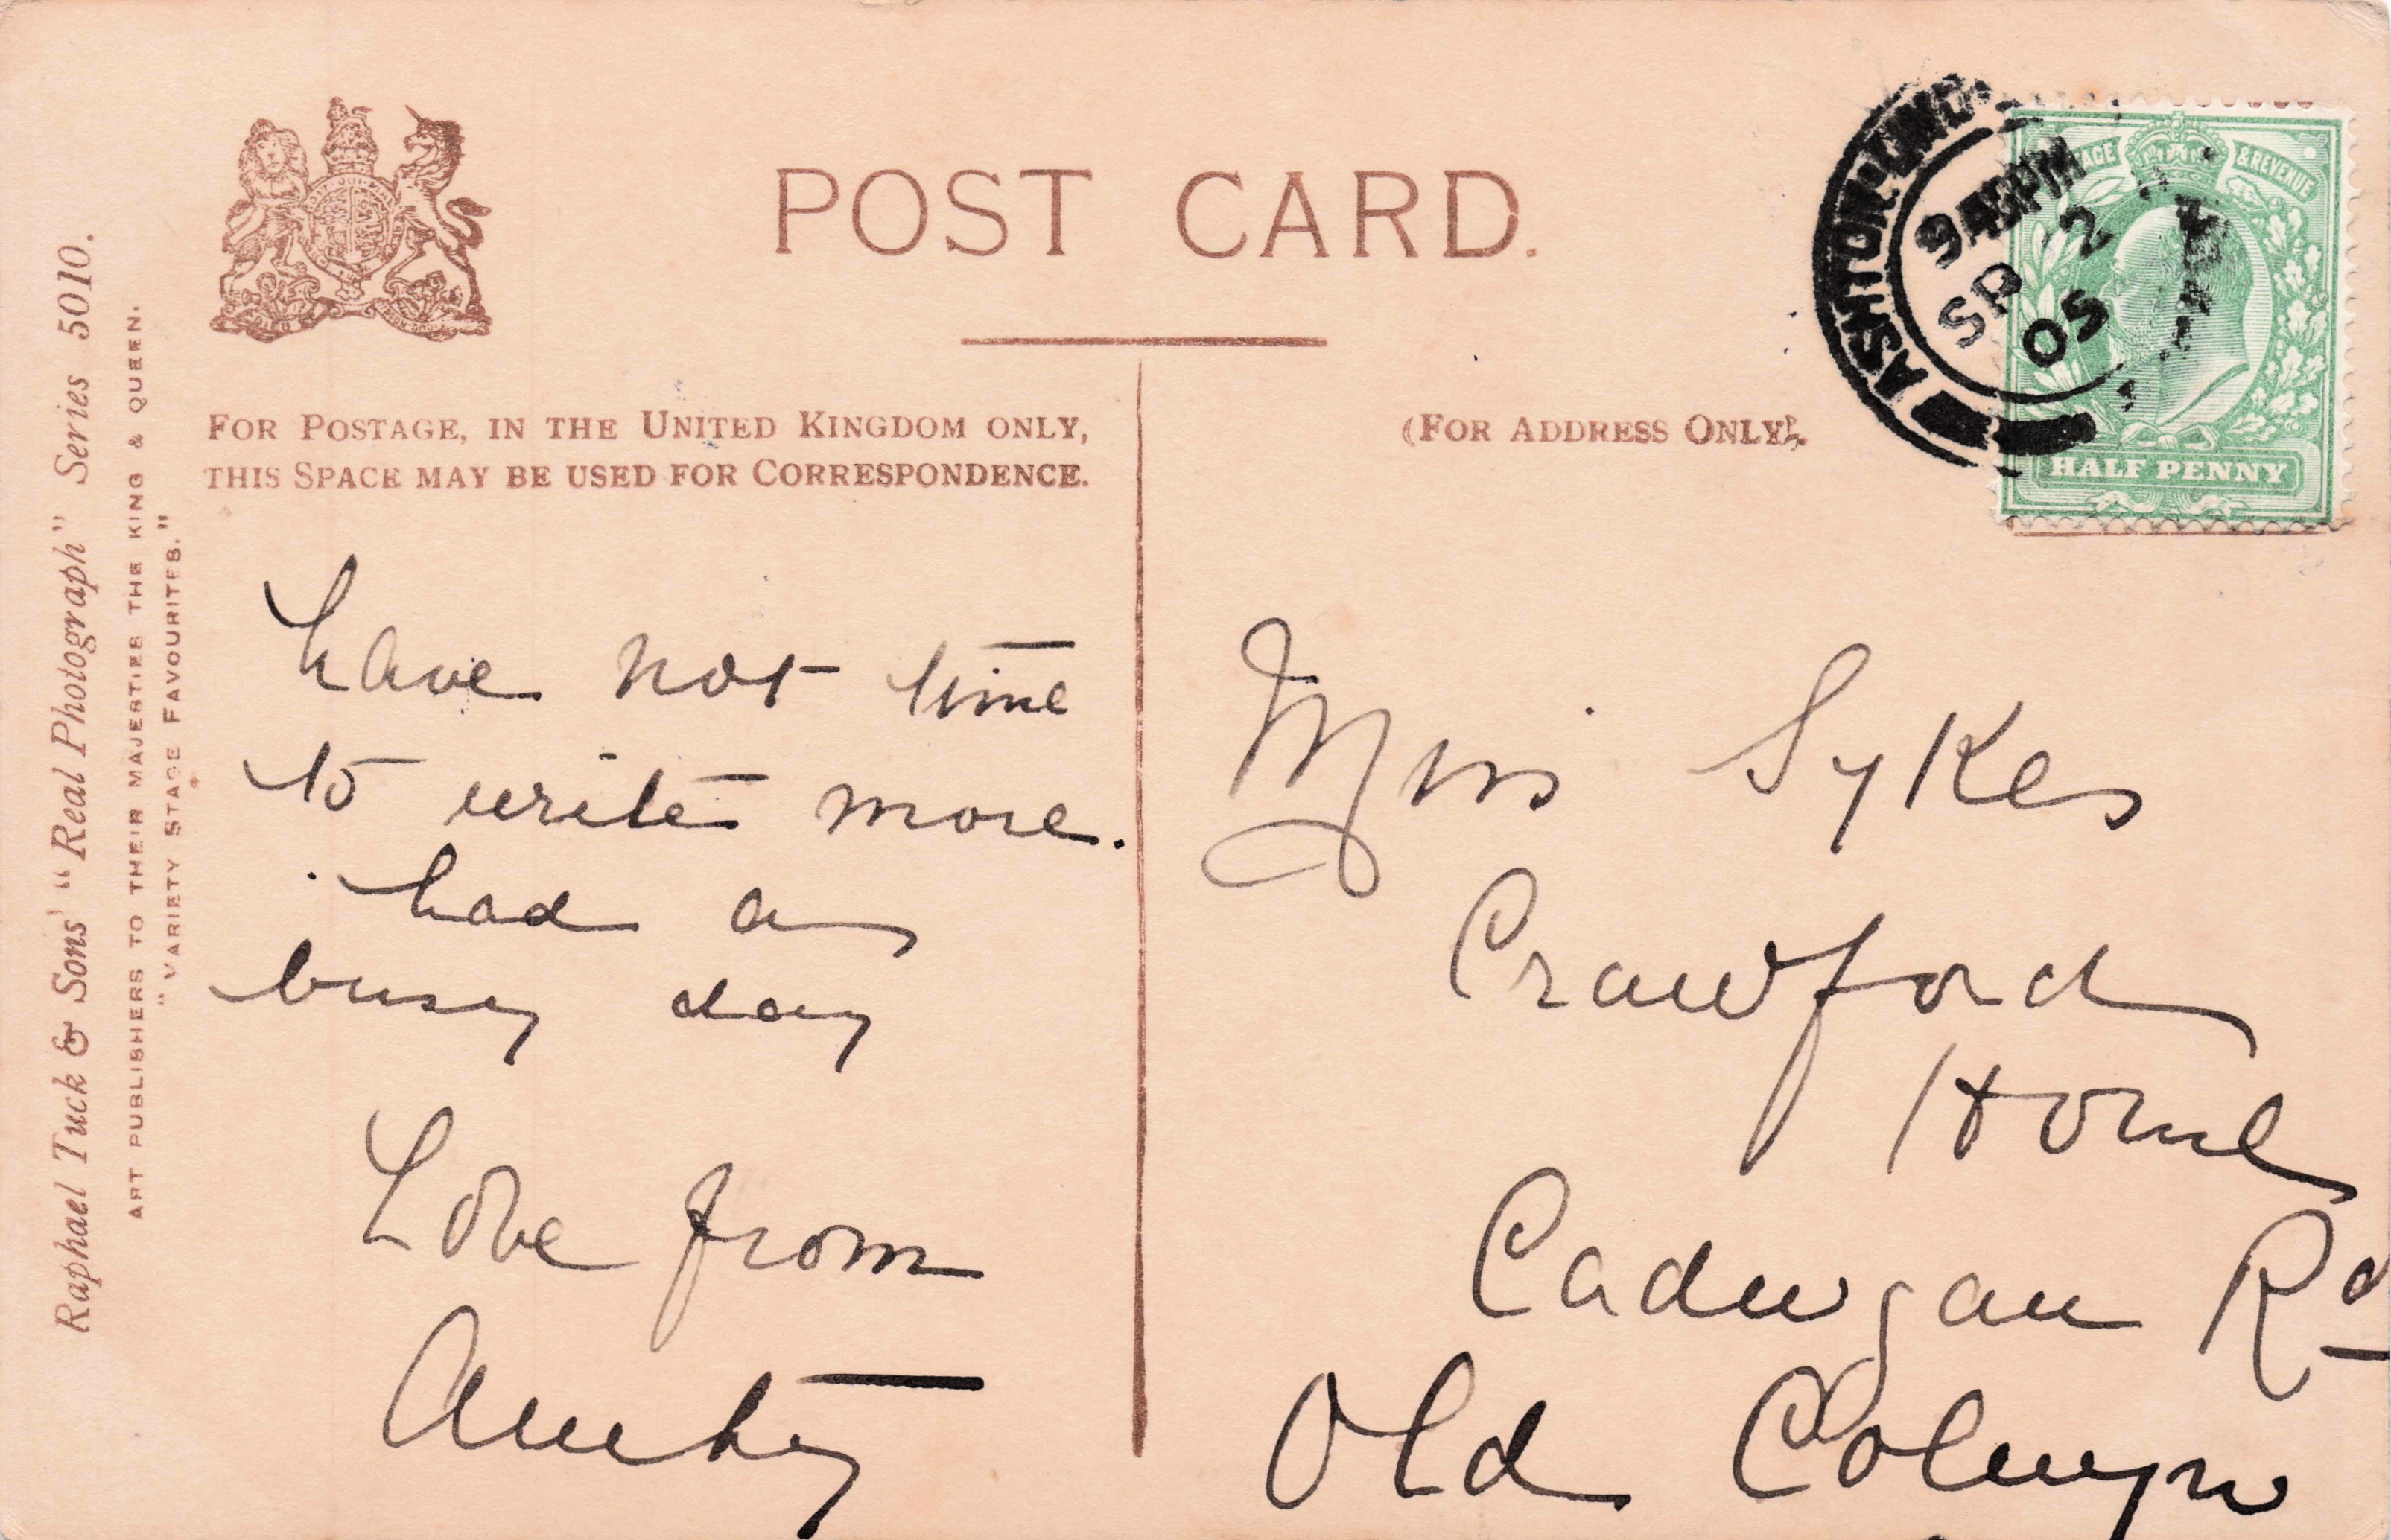 POST CARD.
FOR POSTAGE, IN THE UNITED KINGDOM ONLY,
THIS SPACE MAY BE USED FOR CORRESPONDENCE.
(FOR ADDRESS ONLY).
Raphael Tuck & Sons' "Real Photograph" Series 5010.
ART PUBLISHERS TO THEIR MAJESTIES THE KING & QUEEN.
"VARIETY STAGE FAVOURITES."
ASHTON-UND
9 45 PM
SP 2
05
& REVENUE
HALF PENNY
have not time
to write more.
had a
busy day
Love from
Aunty
Miss Sykes
Crawford
Home
Cadwgan Rd
Old Colwyn